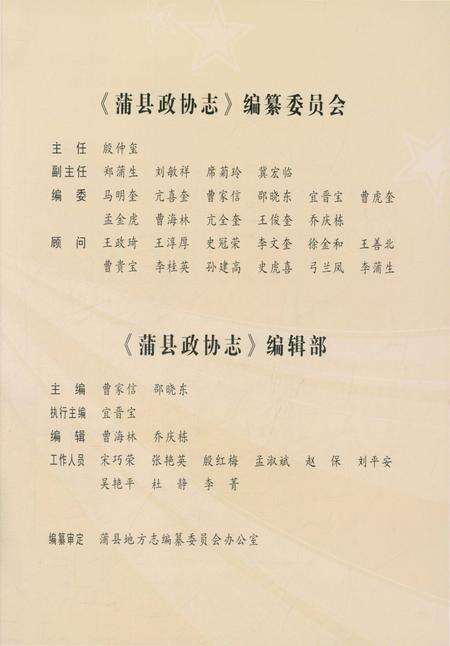 《蒲县政协志》编纂委员会
主 任 殷仲玺
副主任 郑蒲生 刘敏祥 席菊玲 冀宏临
编 委 马明奎 亢喜奎 曹家信 邵晓东 宜晋宝 曹虎奎
孟金虎 曹海林 亢全奎 王俊奎 乔庆栋
顾 问 王政琦 王淳厚 史冠荣 李文奎 徐金和 王善北
曹贵宝 李桂英 孙建高 史虎喜 弓兰凤 李蒲生
《蒲县政协志》编辑部
主 编 曹家信 邵晓东
执行主编 宜晋宝
编 辑 曹海林 乔庆栋
工作人员 宋巧荣 张艳英 殷红梅 孟淑斌 赵 保 刘平安
吴艳平 杜 静 李 菁
编纂审定 蒲县地方志编纂委员会办公室